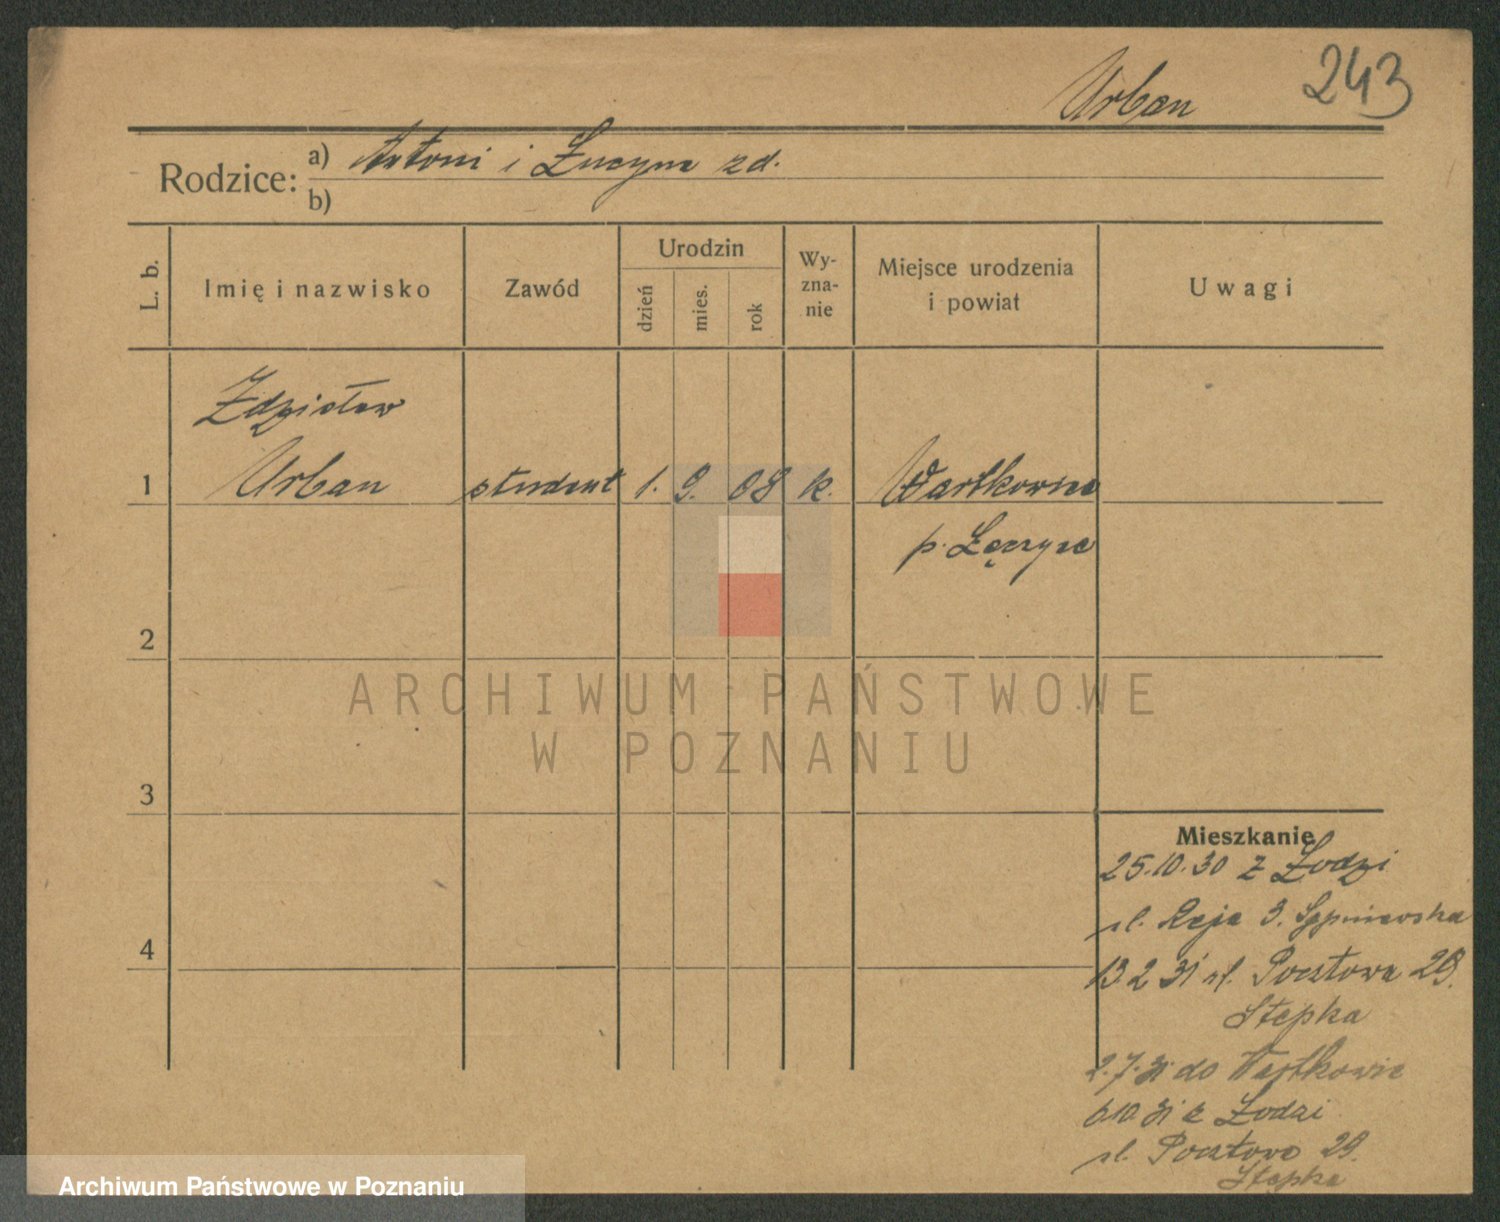 243
Urban
Rodzice: a) Antoni i Łucyna zd.
b)
L. b.
Imię i nazwisko
Zawód
Urodzin
dzień
mies.
rok
Wy-
zna-
nie
Miejsce urodzenia
i powiat
Uwagi
Zdzisław
1 Urban student 1. 9. 08 k. Wartkowice
p. Łęczyca
2
3
4
ARCHIWUM PAŃSTWOWE
W POZNANIU
Mieszkanie
25.10.30 z Łodzi
ul. Reja 3. Sypniewska
13.2 31 ul. Pocztowa 29.
Stępka
2.7.31 do Wartkowic
6 10 31 z Łodzi
ul. Pocztowa 29.
Stępka
Archiwum Państwowe w Poznaniu